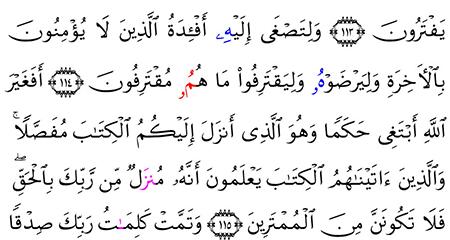 يَفْتَرُونَ ١١٣ وَلِتَصْغَىٰ إِلَيْهِۦ أَفْـِٔدَةُ ٱلَّذِينَ لَا يُؤْمِنُونَ
بِٱلْأَخِرَةِ وَلِيَرْضَوْهُۥ وَلِيَقْتَرِفُوا۟ مَا هُمُۥ مُقْتَرِفُونَ ١١٤ أَفَغَيْرَ
ٱللَّهِ أَبْتَغِى حَكَمًا وَهُوَ ٱلَّذِى أَنزَلَ إِلَيْكُمُ ٱلْكِتَٰبَ مُفَصَّلًا ۚ
وَٱلَّذِينَ ءَاتَيْنَٰهُمُ ٱلْكِتَٰبَ يَعْلَمُونَ أَنَّهُۥ مُنزَلٌ مِّن رَّبِّكَ بِٱلْحَقِّ ۖ
فَلَا تَكُونَنَّ مِنَ ٱلْمُمْتَرِينَ ١١٥ وَتَمَّتْ كَلِمَٰتُ رَبِّكَ صِدْقًا